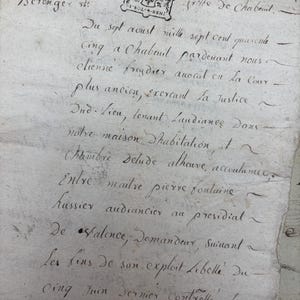 Berenger de Chabeuil
Du sept aoust mille sept cent quarente
cinq a Chabeuil pardevant nous
etienne freydier avocat en La Cour
plus ancien, exerceant La Justice
Dud. Lieu, tenant Laudiance Dans
nôtre maison D'habitation, et
Chambre Delude alheure, accoutumée,
Entre maitre pierre fontaine
huissier audiancier au presidial
De Valence, Demandeur, suivant
Les fins de son exploit Libellé Du
cinq Juin Dernier Controllé